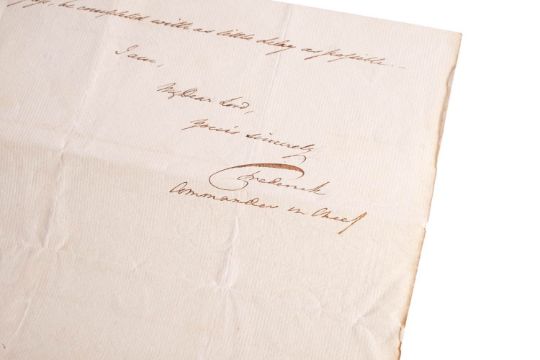 be completed with as little delay as possible...
I am,
My Dear Lord,
yours sincerely
Frederick
Commander in Chief